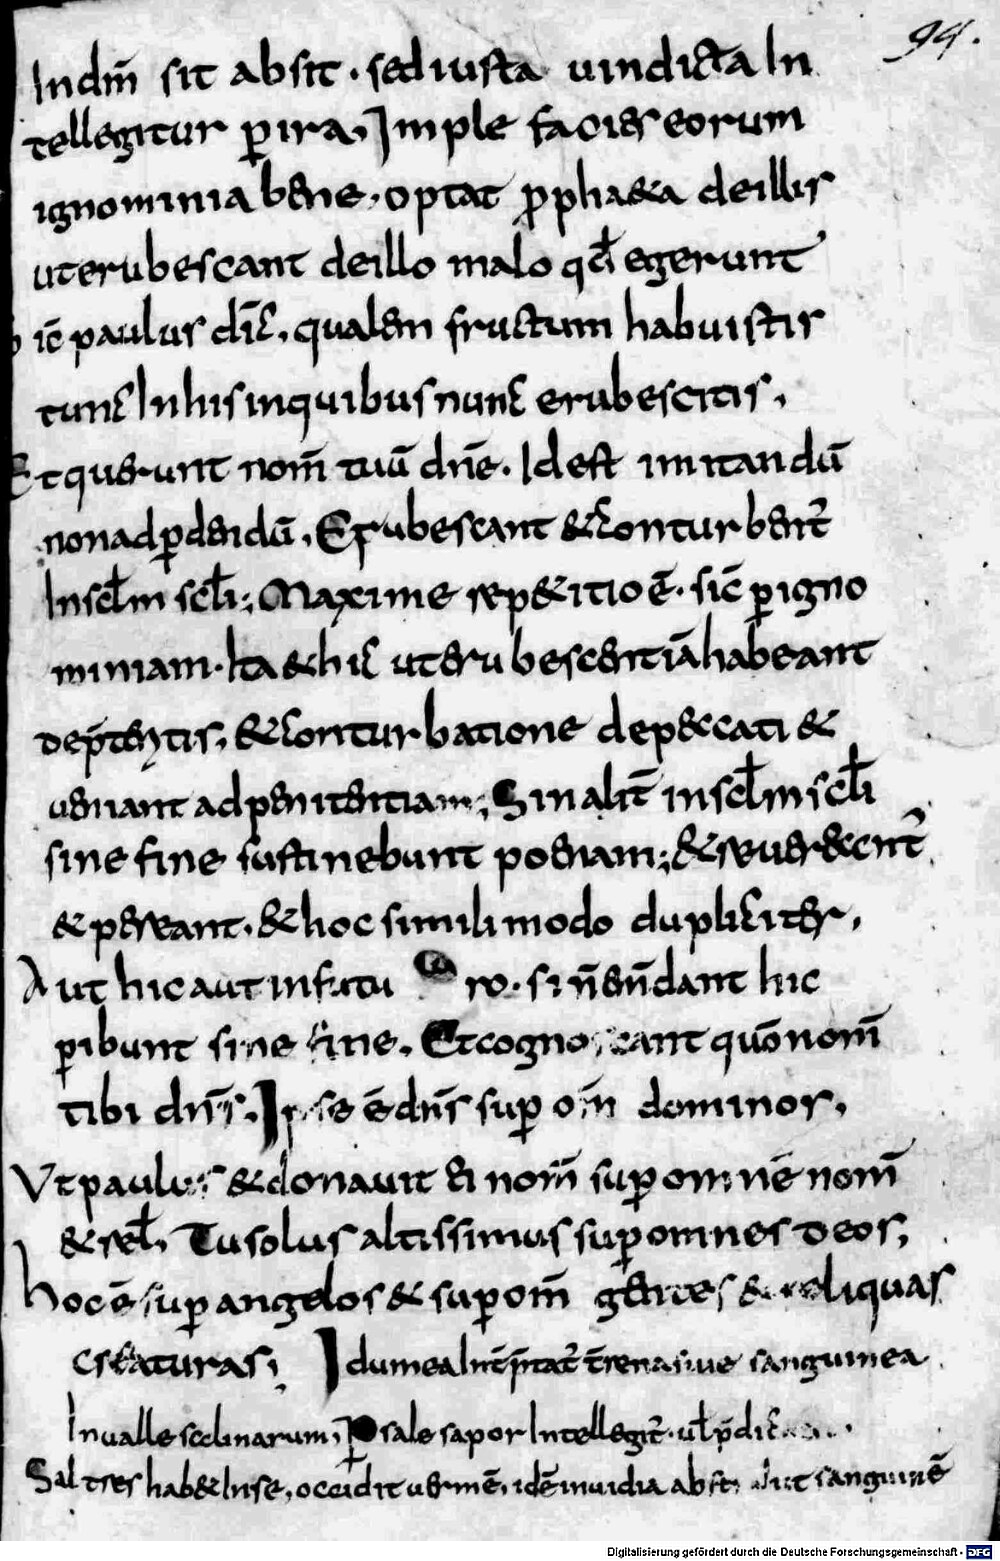 94.
Indm̄ sit absit · sed iusta uindicta In
tellegitur p̱ ira, Imple facies eorum
ignominia bene, optat p̱pha&a deillis
uterubescant deillo malo qđ egerunt
ic̄ paulus dic̄, qualem fructum habuistis
tunc Inhis inquibus nunc erubescitis,
Et querunt nom̄ tuū dn̄e. Idest imitandū
nonadp̱dendū, Erubescant &conturbent᷒
Inscłm scłi; Maxime rep&itio ē · sic̄ p̱igno
miniam · Ita &hic uterubescentiā habeant
&conturbatione depeccati &
ueniant adpenitentiam; Sin alit̄ inscłm scłi
sine fine sustinebunt poenam; &reuer&ent᷒
&pereant, &hoc simili modo dupliciter,
Aut hic aut infutu ro. si n̄ em̄dant hic
p̱ibunt sine fine. Etcognoscant quō nom̄
tibi dn̄s. Ipse ē dn̄s sup̱ om̄ dominos,
Vt paulus &donauit ei nom̄ sup̱ omne nom̄
&reł, Tu solus altissimus sup̱ omnes deos,
hoc ē sup̱ angelos & sup̱ om̄ gentes & reliquas
creaturas; Idumea Int̄p̄tat᷒ t̄rena siue sanguinea
Inualle salinarum, P̱ sale sapor Intellegit᷒ · uł p̄dic
Sal tres hab& Inse, occidit uermē, idē inuidia abst sanguinē
Digitalisierung gefördert durch die Deutsche Forschungsgemeinschaft - DFG